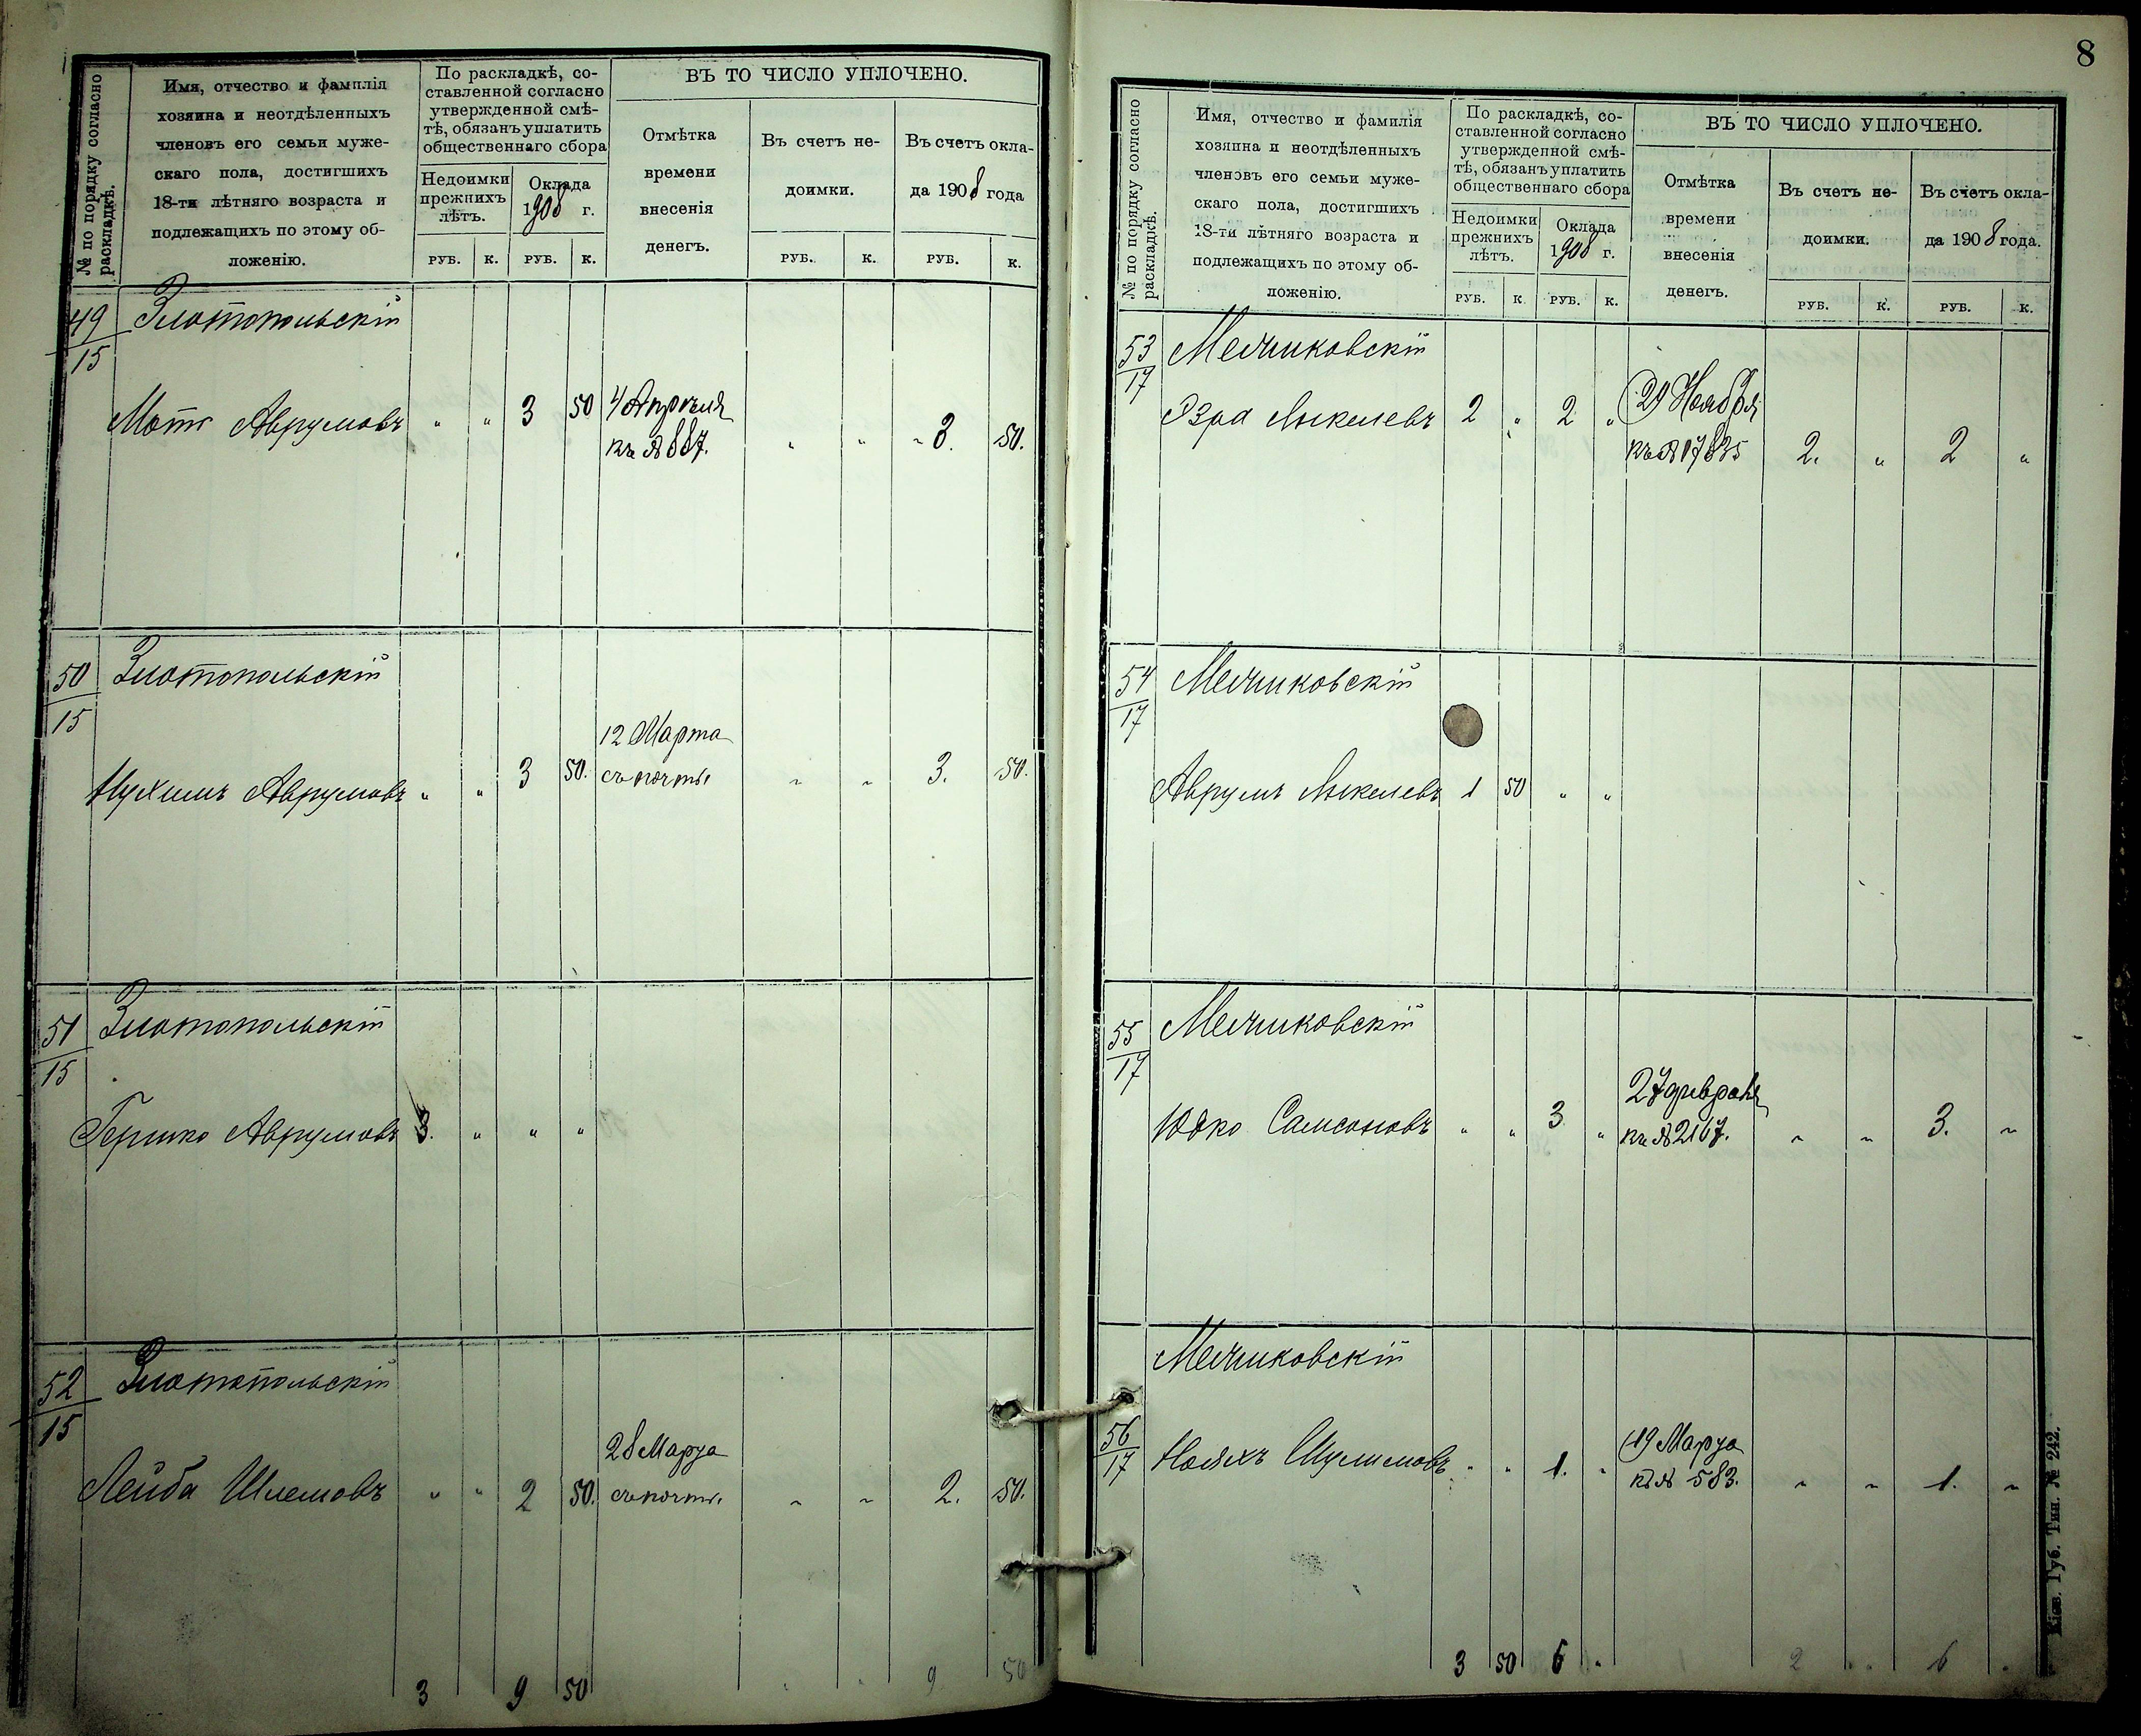 № по порядку согласно
раскладкѣ.
Имя, отчество и фамилія
хозяина и неотдѣленныхъ
членовъ его семьи муже-
скаго пола, достигшихъ
18-ти лѣтняго возраста и
подлежащихъ по этому об-
ложенію.
По раскладкѣ, со-
ставленной согласно
утвержденной смѣ-
тѣ, обязанъ уплатить
общественнаго сбора
Недоимки
прежнихъ
лѣтъ.
Оклада
1908 г.
РУБ. К. РУБ. К.
ВЪ ТО ЧИСЛО УПЛОЧЕНО.
Отмѣтка
времени
внесенія
денегъ.
Въ счетъ не-
доимки.
Въ счетъ окла-
да 1908 года
РУБ. К. РУБ. К.
49 Златопольскій
15
Мотя Аврумовъ " " 3 50 4 Апрѣля " " 3. 50.
къ № 887.
50 Златопольскій
15
12 Марта
Нухимъ Аврумовъ " " 3 50. съ почты " " 3. 50.
51 Златопольскій
15
Гершко Аврумовъ 3. " " "
52 Златопольскій
15
28 Марта
Лейба Шлемовъ " " 2 50. съ почты. " " 2. 50.
3 9 50 " " 9 50
8
№ по порядку согласно
раскладкѣ.
Имя, отчество и фамилія
хозяина и неотдѣленныхъ
членовъ его семьи муже-
скаго пола, достигшихъ
18-ти лѣтняго возраста и
подлежащихъ по этому об-
ложенію.
По раскладкѣ, со-
ставленной согласно
утвержденной смѣ-
тѣ, обязанъ уплатить
общественнаго сбора
Недоимки
прежнихъ
лѣтъ.
Оклада
1908 г.
РУБ. К. РУБ. К.
ВЪ ТО ЧИСЛО УПЛОЧЕНО.
Отмѣтка
времени
внесенія
денегъ.
Въ счетъ не-
доимки.
Въ счетъ окла-
да 1908 года.
РУБ. К. РУБ. К.
53 Мечниковскій
17
Эзра Янкелевъ 2 " 2 " 29 Ноября
къ № 17835 2. " 2 "
54 Мечниковскій
17
Аврумъ Янкелевъ 1 50 " "
55 Мечниковскій
17
27 февраля
Юдко Самсоновъ " " 3 " къ № 2167. " " 3. "
Мечниковскій
56
17 Нояхъ Шулимовъ " " 1. " 19 Марта
къ № 583. " " 1. "
3 50 6 " 2 " 6 "
Кіев. Губ. Тип. № 242.